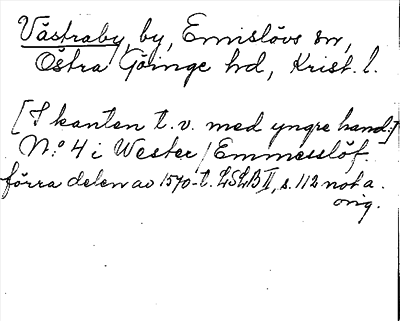 Västraby by, Emislövs sn,
Östra Göinge hd, Krist. l.
[I kanten t.v. med yngre hand:]
N:o 4 i Wester/Emmesslöf.
förra delen av 1570-t. LSLB II, s. 112 not a.
orig.